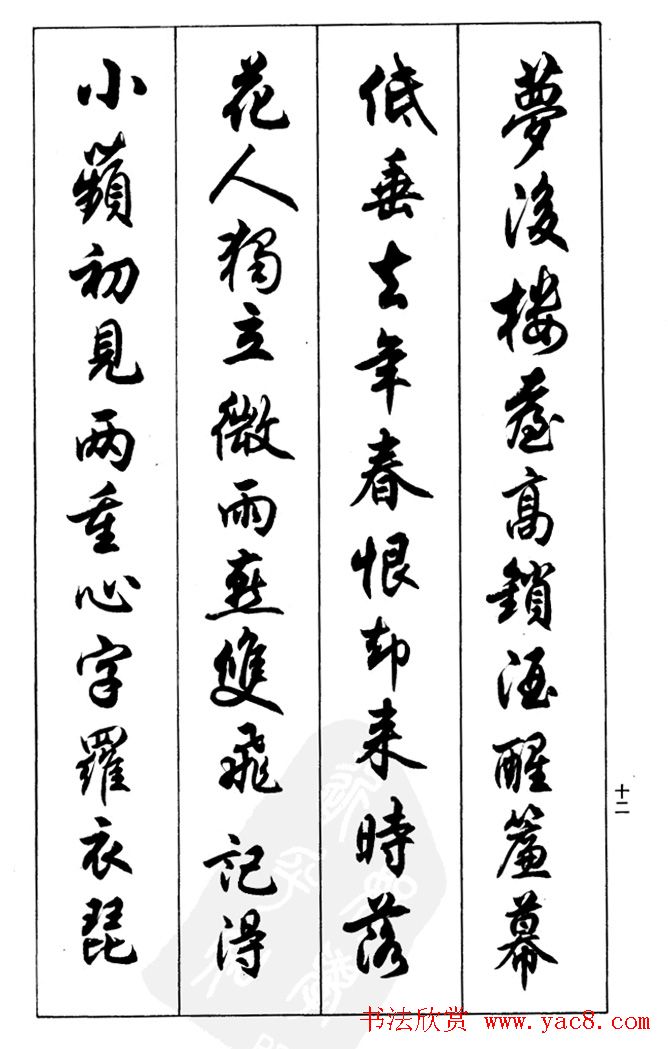 夢後樓臺高鎖酒醒簾幕
低垂去年春恨却来時落
花人獨立微雨燕雙飛記得
小蘋初見兩重心字羅衣琵
十二
书法欣赏 www.yac8.com